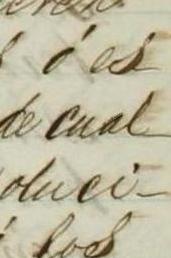 ó es
de cual
oluci-
los